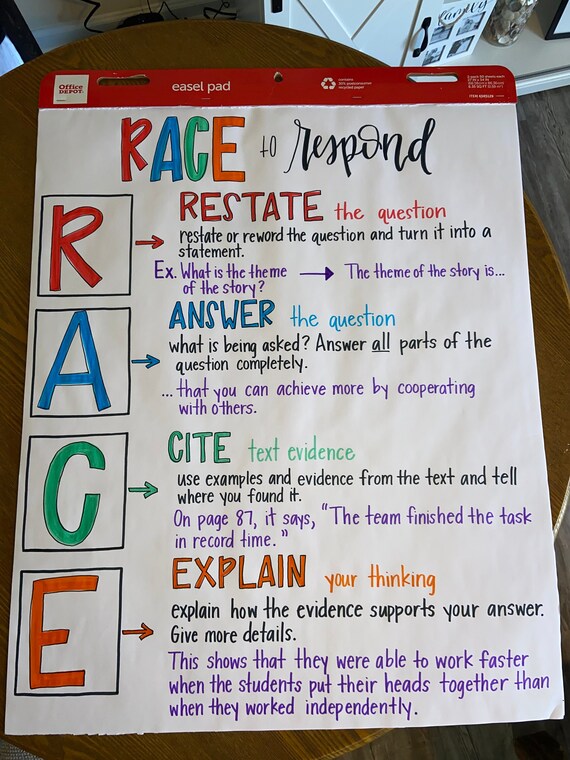 family
Office DEPOT
easel pad
contains 30% postconsumer recycled paper
RACE to respond
R
RESTATE the question
restate or reword the question and turn it into a
statement.
Ex. What is the theme The theme of the story is...
of the story?
A
ANSWER the question
what is being asked? Answer all parts of the
question completely.
...that you can achieve more by cooperating
with others.
C
CITE text evidence
use examples and evidence from the text and tell
where you found it.
On page 87, it says, "The team finished the task
in record time."
E
EXPLAIN your thinking
explain how the evidence supports your answer.
Give more details.
This shows that they were able to work faster
when the students put their heads together than
when they worked independently.